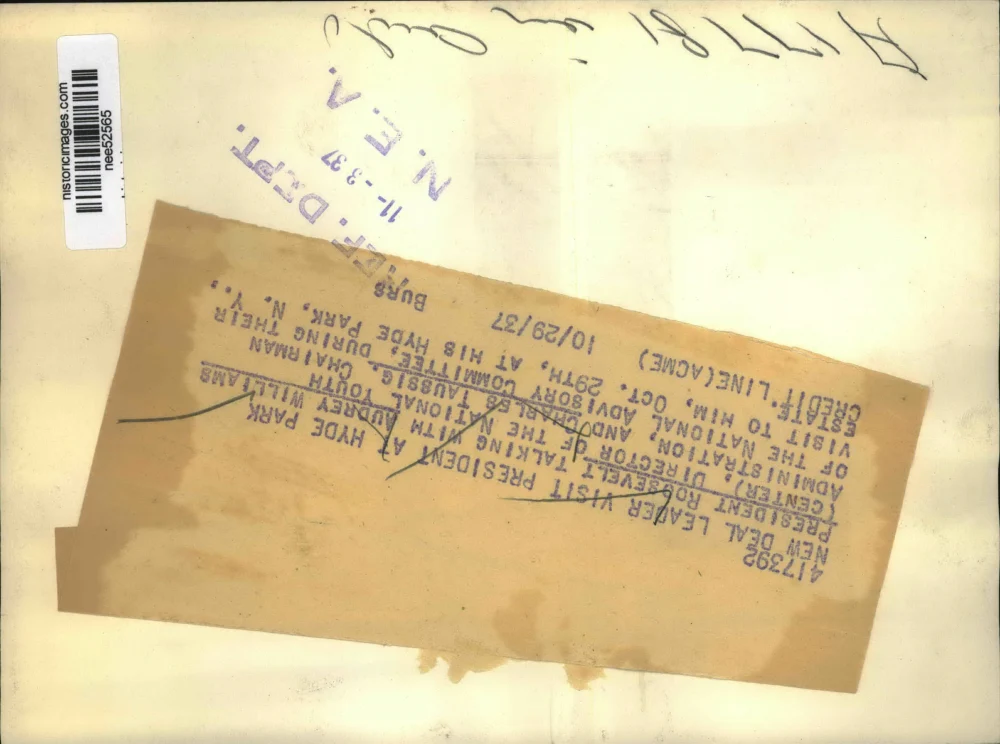 417392
NEW DEAL LEADER VISIT PRESIDENT AT HYDE PARK
PRESIDENT ROOSEVELT TALKING WITH AUDREY WILLIAMS
(CENTER), DIRECTOR OF THE NATIONAL YOUTH
ADMINISTRATION, AND CHARLES TAUSSIG, CHAIRMAN
OF THE NATIONAL ADVISORY COMMITTEE, DURING THEIR
VISIT TO HIM, OCT. 29TH, AT HIS HYDE PARK, N. Y.,
ESTATE.
CREDIT LINE(ACME) 10/29/37 BURS
N. E. A.
11--3 37
REF. DEPT.
historicimages.com
nee52565